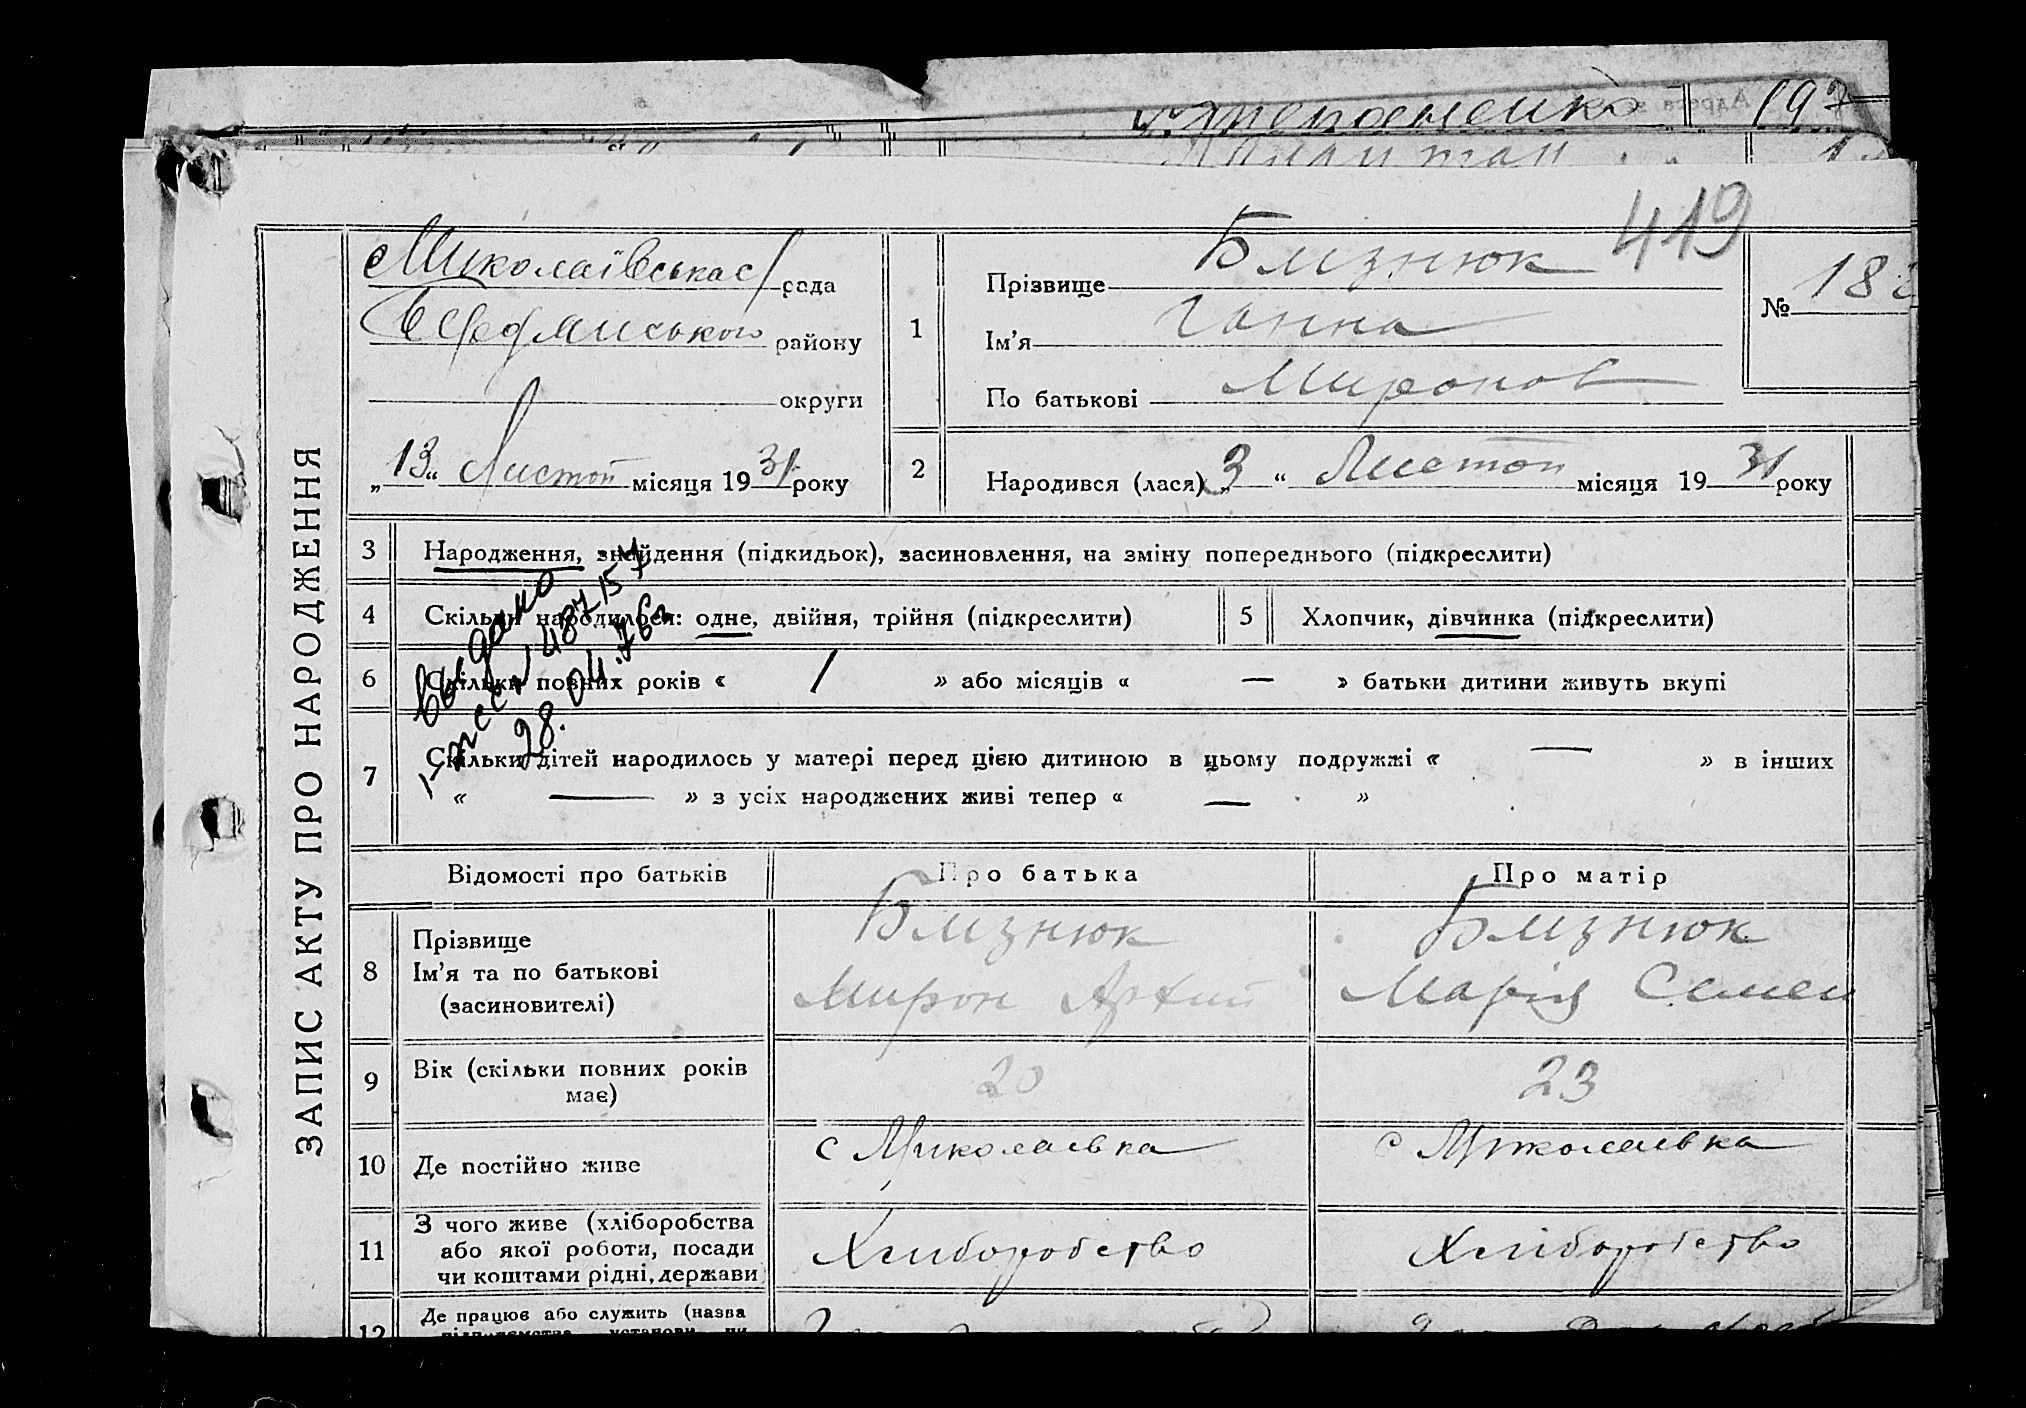 Степаненко 197
419
Миколаївська с/рада
району
округи
„13“ Листоп місяця 1931 року
ЗАПИС АКТУ ПРО НАРОДЖЕННЯ
1 Прізвище Близнюк
Ім’я Ганна
По батькові Миронов
№ 18
2 Народився (лася) „3“ Листоп місяця 1931 року
3 Народження, знайдення (підкидьок), засиновлення, на зміну попереднього (підкреслити)
4 Скільки народилося: одне, двійня, трійня (підкреслити) 5 Хлопчик, дівчинка (підкреслити)
6 Скільки повних років « 1 » або місяців « — » батьки дитини живуть вкупі
7 Скільки дітей народилось у матері перед цією дитиною в цьому подружжі « — » в інших
« — » з усіх народжених живі тепер « — »
Выдано
487157
28.04.76г
Відомості про батьків Про батька Про матір
8 Прізвище Близнюк Близнюк
Ім’я та по батькові Мирон Архип Марія Семен
(засиновителі)
9 Вік (скільки повних років має) 20 23
10 Де постійно живе с Миколаївка с Миколаївка
11 З чого живе (хліборобства
або якої роботи, посади Хліборобство Хліборобство
чи коштами рідні, держави
12 Де працює або служить (назва